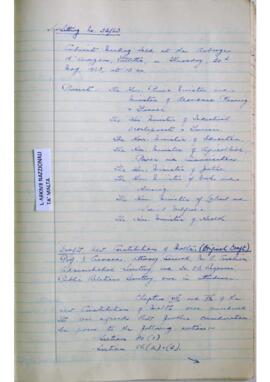 Sitting No. 28/63
Cabinet Meeting held at the Auberge
d'Aragon, Valletta, on Thursday,
May, 1963, at 10 am
Present: The Hon. Prime Minister and
Minister of Economic Planning
& Finance
The Hon. Minister of Industrial
Development & Tourism
The Hon. Minister of Education
The Hon. Minister of Agriculture
Power and Communications
The Hon. Minister of Justice
The Hon. Minister of Works and
Housing
The Hon. Minister of Labour and
Social Welfare
The Hon. Minister of Health
L-ARKIVJI NAZZJONALI
TA' MALTA
Draft New Constitution of Malta (Original Draft)
Prof. J. Cremona, Attorney General,
Administrative Secretary and
Public Relations Secretary, were in attendance.
Chapters and of the
new Constitution of Malta were considered
It was agreed that further consideration
be given to the following sections:-
Section
Section